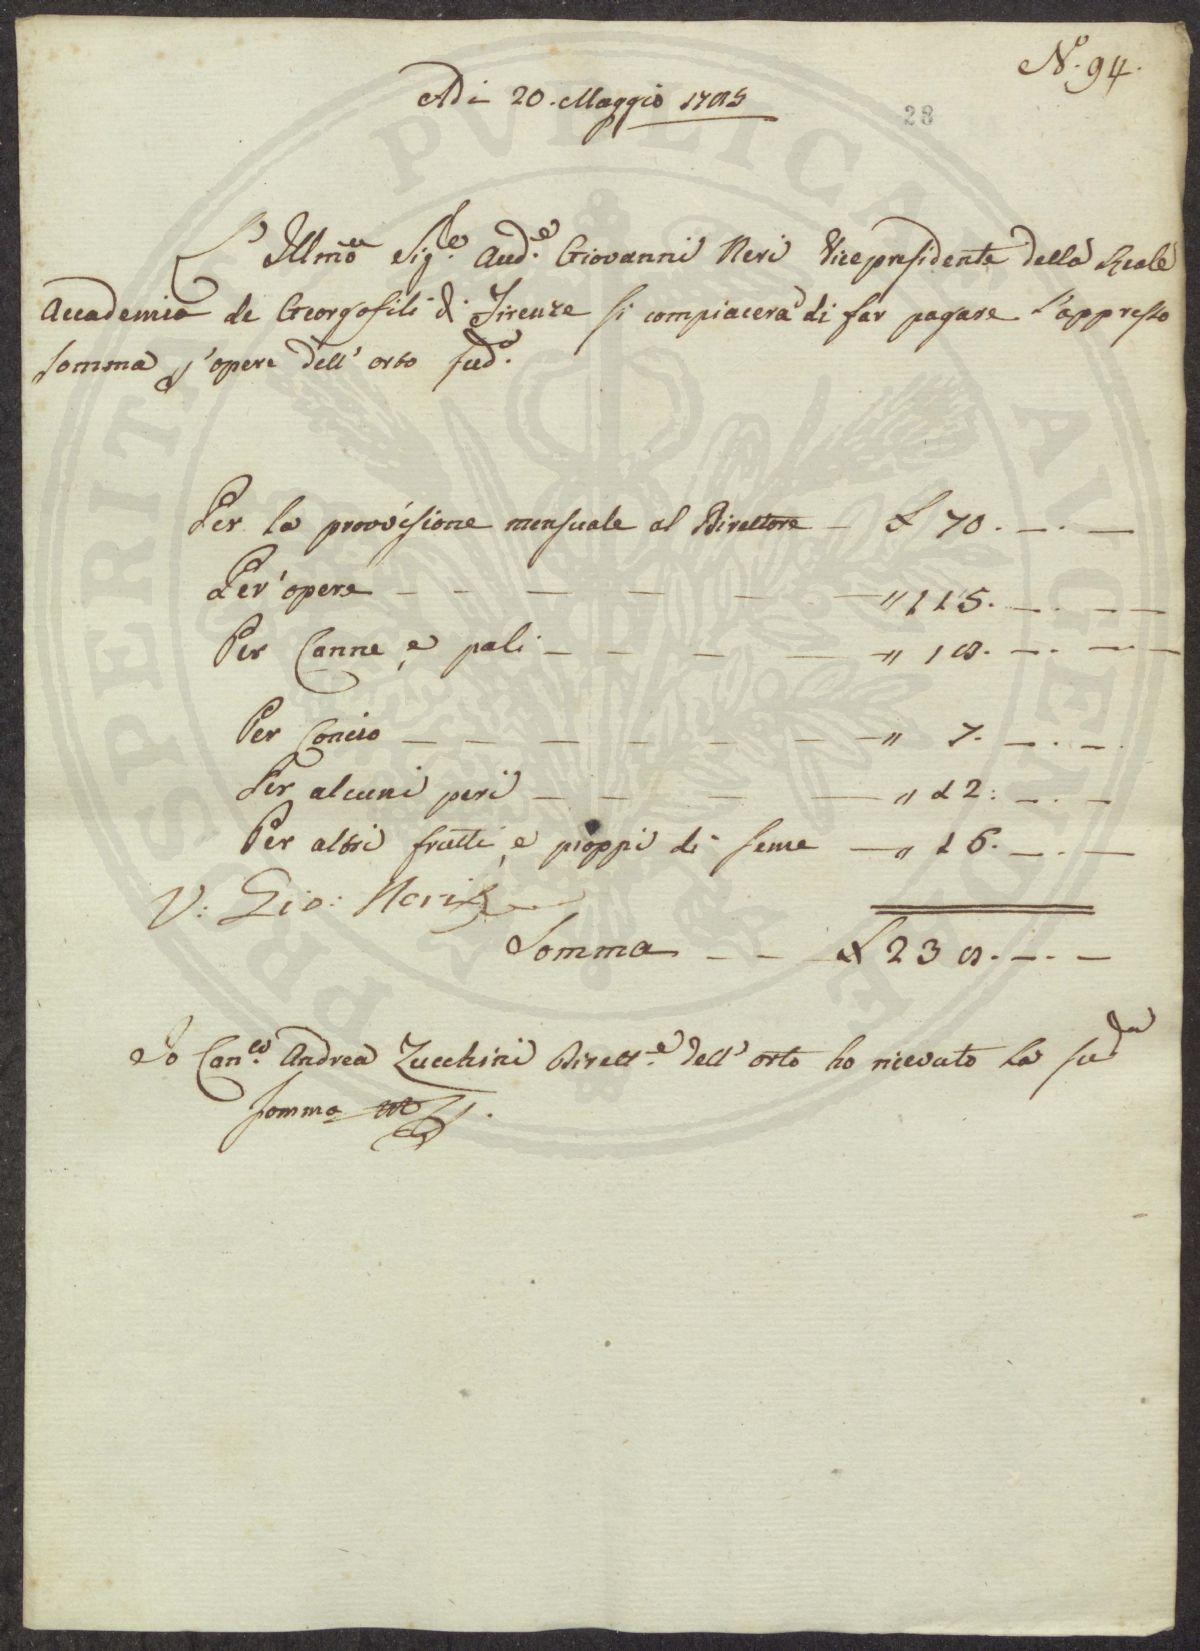 N.º 94.
Adi 20. Maggio 1785
28
L' Illmõ Sig.re Aud.e Giovanni Neri Vicepresidente della Reale
Accademia de Georgofili di Firenze si compiacerà di far pagare l'appresso
somma p l'opere dell' orto sud.o
Per la provvisione mensuale al Direttore — £ 70. — . —
Per l'opere — — — — — — — " 115. — . — —
Per Canne, e pali — — — — — " 18. — . — . —
Per Concio — — — — — — — " 7. — . — .
Per alcuni peri — — — — — " 12 : — . —
Per altri frutti, e pioppi di seme — " 16. — . —
V: Gio: Neri
Somma — — £ 238. — . —
Io Can.co Andrea Zucchini Dirett.e dell' orto ho ricevuto la sud.a
somma
PROSPERITATI PVBLICAE AVGENDAE